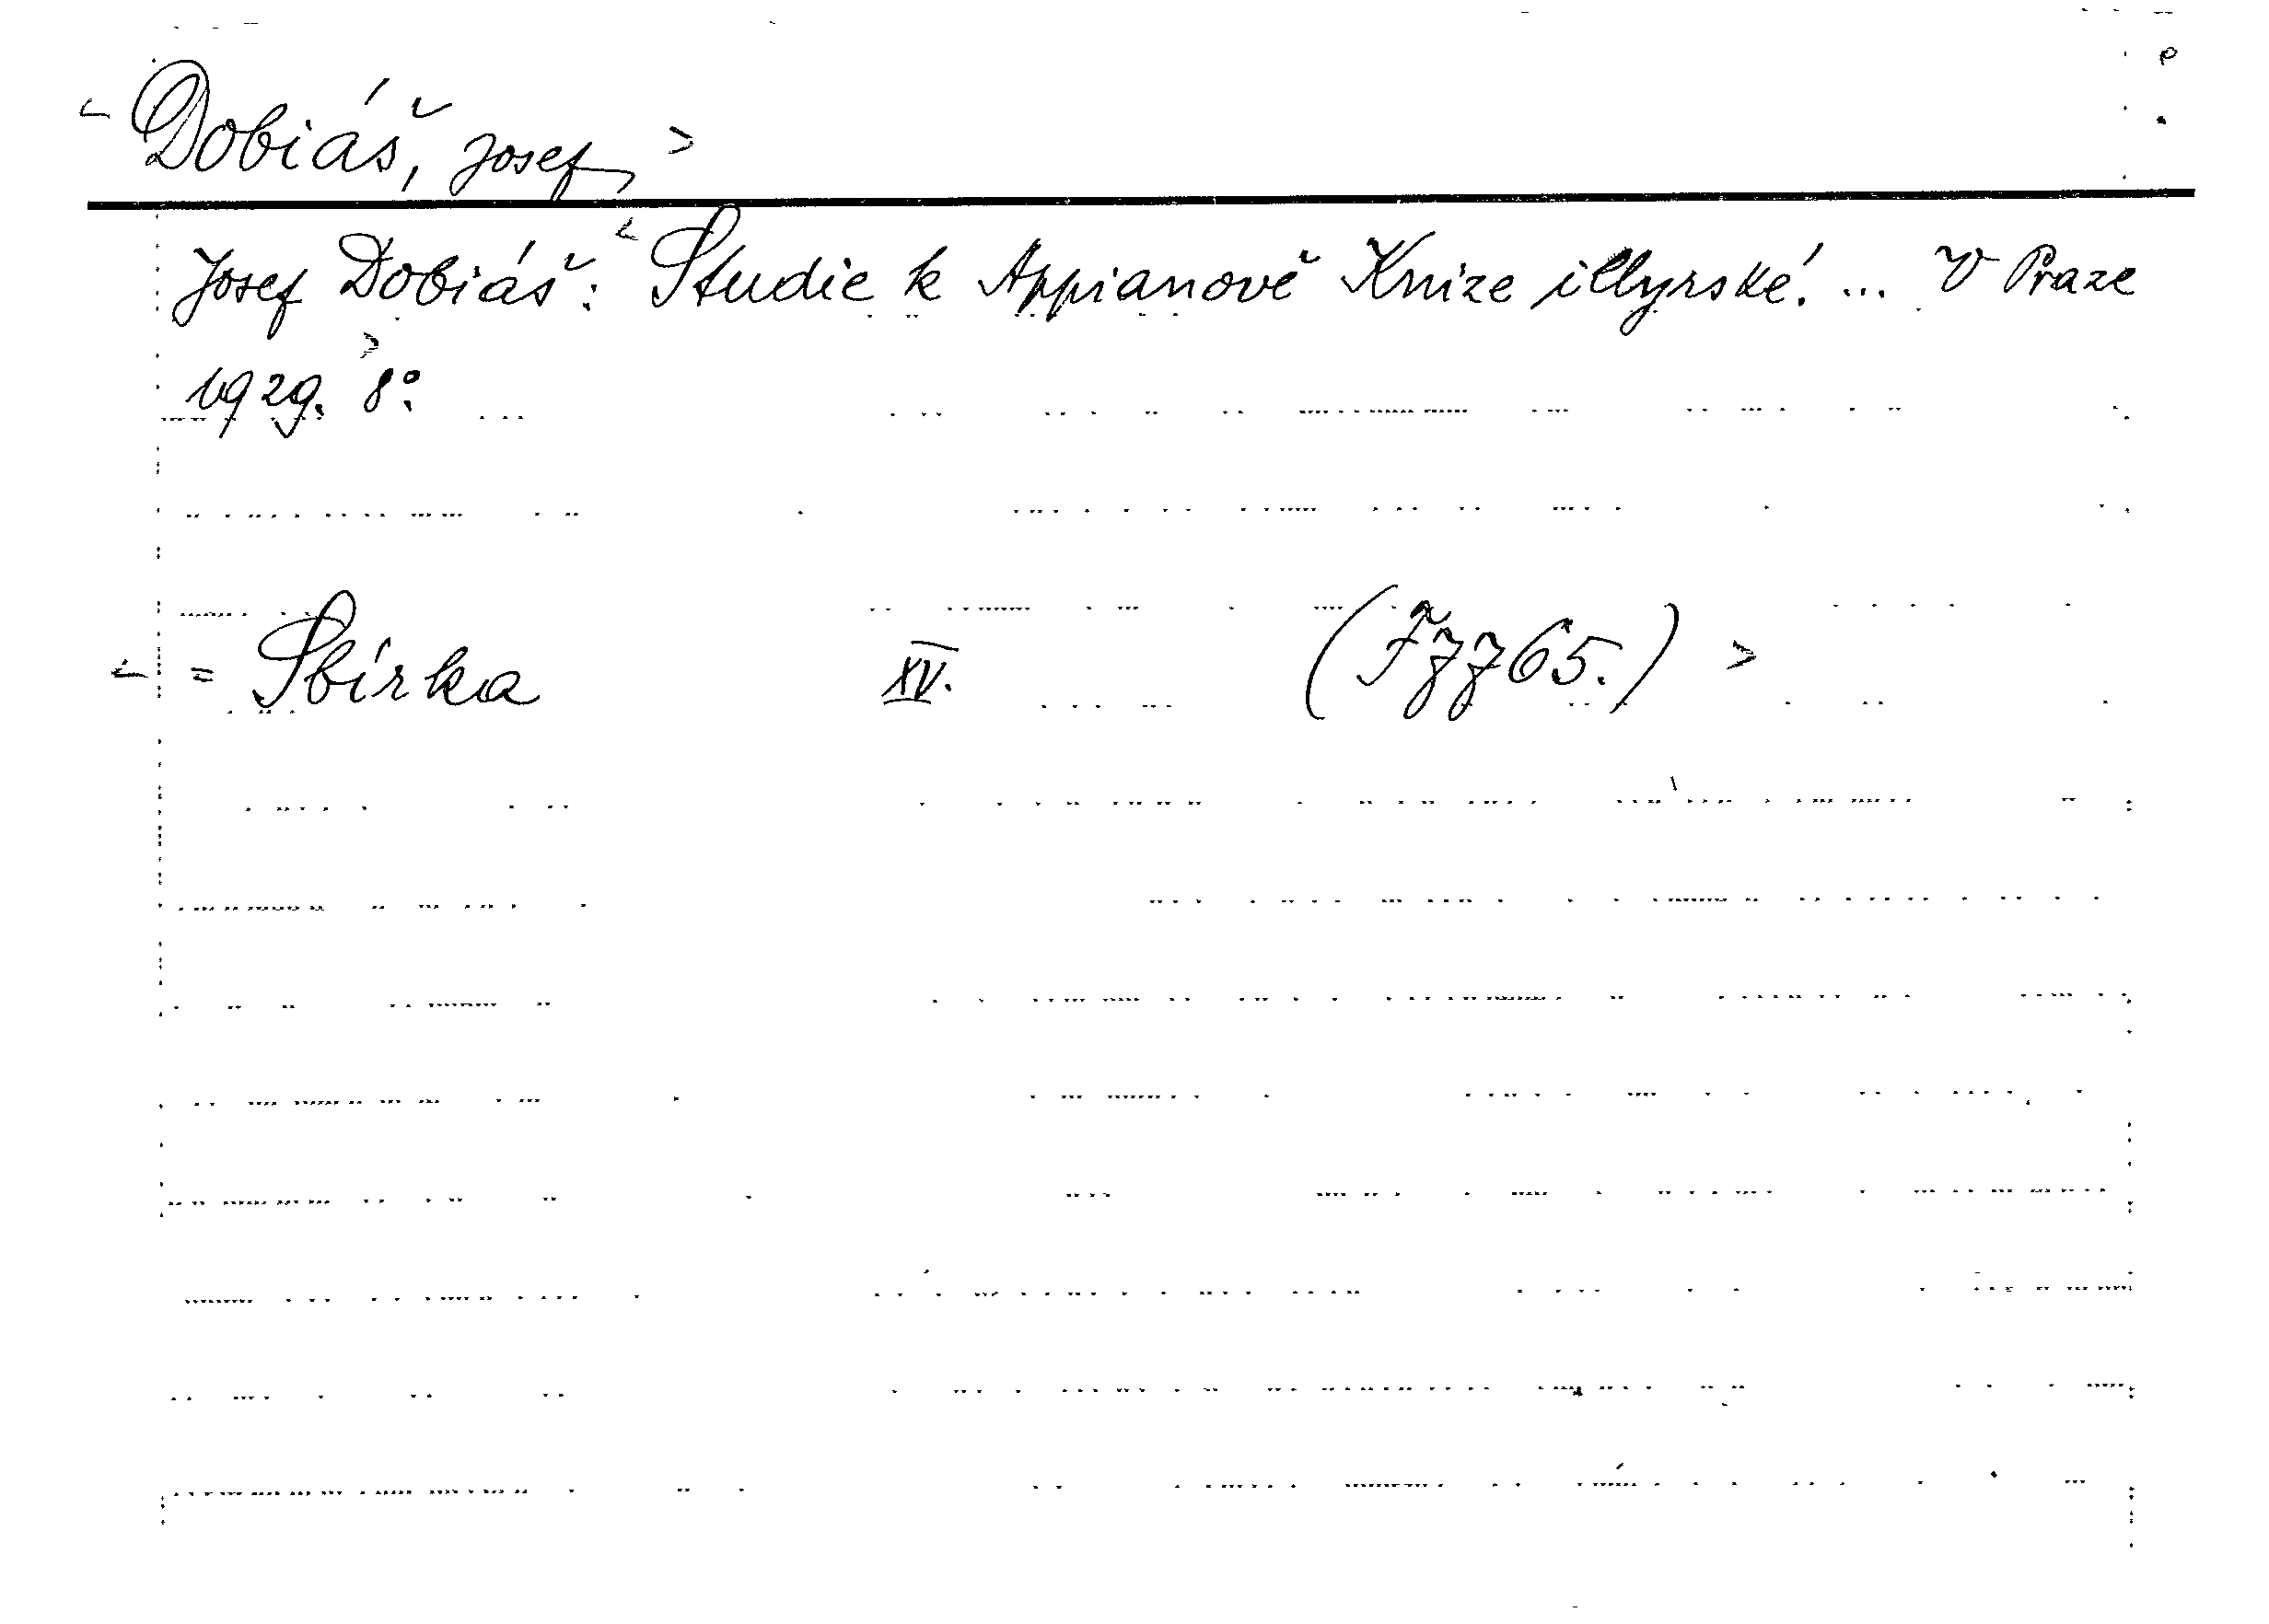 < Dobiáš, Josef, >
Josef Dobiáš: < Studie k Appianově Knize illyrské. ... V Praze
1929. > 8°.
< = Sbírka XV. (F 7765.) >